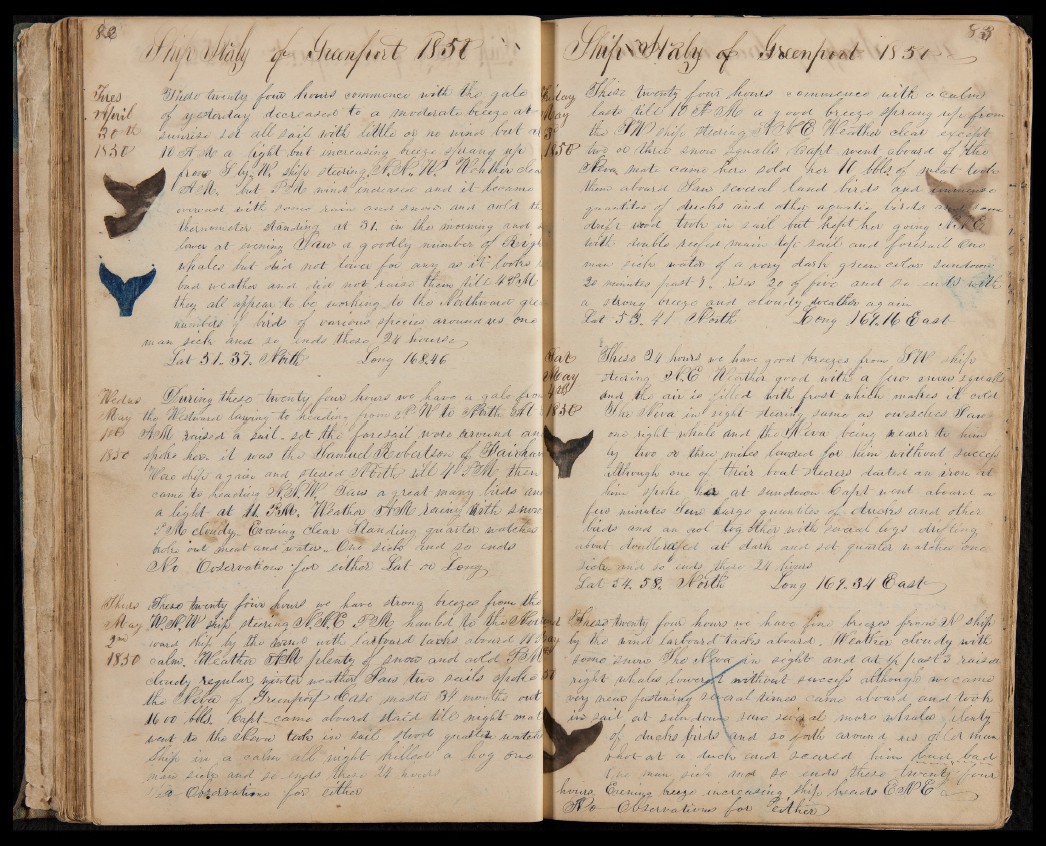 82
Ship Italy of Greenport 1850
Tues
April
30th
1850
These twenty four hours commence with the gale
of yesterday decreased to a moderate breeze at
sunrise set all sail with little or no wind but at
10 A.M a light but increasing breeze sprang up
from S by W. ship steering N.N.W. Weather clear
A.M. but P.M wind increased and it became
overcast with some rain and snow and cold
thermometer standing at 31. in the morning and
lower at evening Saw a goodly number of Right
whales but did not lower for any as it looks
bad weather and did not raise them till 4 P.M
they all appear to be working to the Northward
numbers of birds of various species around us One
man sick and so ends these 24 hours
Lat 51. 37. North Long 168.46
Wednes
May
1st
1850
During these twenty four hours we have a gale from
the Westward hauling to heading from to North At
A.M raised a sail. set the foresail wore around and
spoke her. it was the Samuel Robertson of Fairhaven
Wore ship again and steered North till 4 P.M. then
came to heading N.N.W. Saw a great many birds and
a light at 11 P.M. Weather A.M rainey with snow
P.M cloudy. Evening clear Standing quarter watches
broke out meat and water. One sick and so ends
No Observations for either Lat or Long
Thurs
May
2nd
1850
These twenty four hours we have strong breezes from the
W.N.W ship steering N.N.E. P.M hauled to the
ward ship by the wind with larboard tacks aboard
calm. Weather A.M plenty of snow and cold P.M
cloudy regular winter weather Saw two sails spoke
the Neva of Greenport Case master 34 months out
1600 bbls. Capt came aboard staid till night mate
went to the Neva took in sail stood quarter watches
Ship in a calm all night killed a hog One
man sick and so ends these 24 hours
No Observations for either
83
Ship Italy of Greenport 1850
Friday
May
3d
1850
These twenty four hours commence with a calm
lasts till 10 A.M a good breeze sprung up from
the S.W ship steering N.N.E Weather clear except
two or three snow squalls Capt went aboard of the
Neva mate came here sold her 11 bbls of meat took
them aboard Saw several land birds and immense
quantities of ducks and other aquatic birds and some
drift wood took in sail but kept her going
with double reefed main top sail and foresail One
man sick water of a very dark green color Sundown
20 minutes past 7. rises 20 of five and so ends with
a strong breeze and cloudy weather again
Lat 53. 41 North Long 169.16 East
Sat
May
4th
1850
These 24 hours we have good breezes from S.W ship
steering N.E Weather good with a few snow squalls
and the air is filled with frost which makes it cold
The Neva in sight steering same as ourselves Saw
one right whale and the Neva being nearer to him
by two or three miles lowered for him without success
although one of their boat steerers darted an iron at
him spoke her at sundown Capt went aboard a
few minutes Saw large quantities of ducks and other
birds and an owl together with several logs drifting
about double reefed at dark and set quarter watches One
sick and so ends these 24 hours
Lat 54. 58. North Long 169.34 East
These twenty four hours we have fine breezes from N ship
by the wind larboard tacks aboard. Weather cloudy with
some snow The Neva in sight and at ½ past 3 raised
right whales lowered without success although we came
very near fastening several times came aboard and took
in sail at sundown saw several more whales plenty
of ducks birds and so forth around us Old man
shot at a duck and scared him bad, bad
One man sick and so ends these twenty four
hours. Evening breeze increasing ship heads E N E
No Observations for either